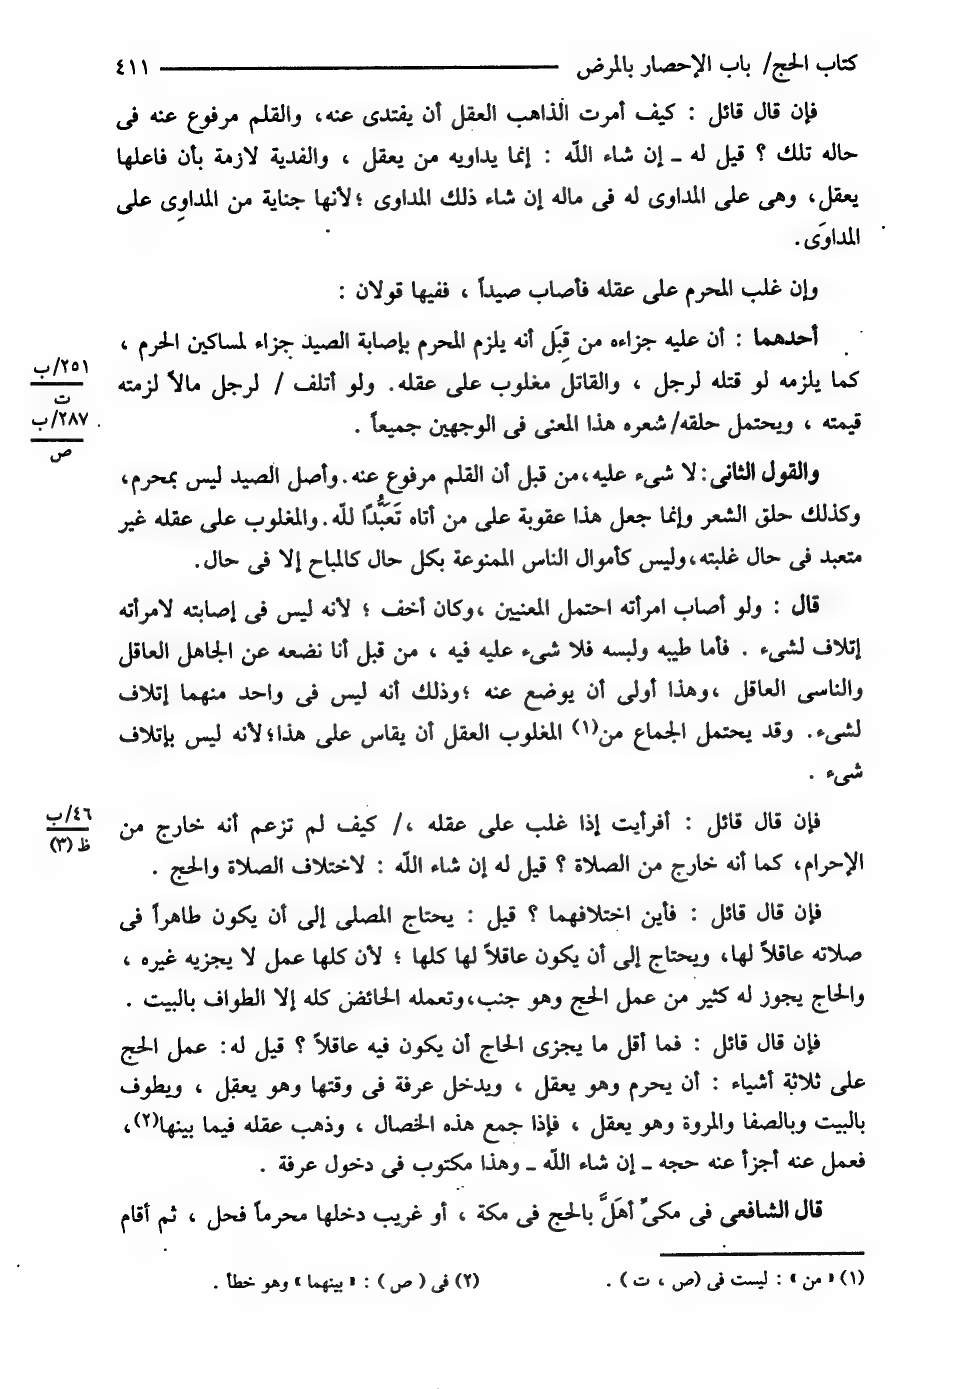 كتاب الحج/ باب الإحصار بالمرض ٤١١
فإن قال قائل : كيف أمرت الذاهب العقل أن يفتدى عنه، والقلم مرفوع عنه فى
حاله تلك ؟ قيل له ـ إن شاء اللّه : إنما يداويه من يعقل ، والفدية لازمة بأن فاعلها
يعقل، وهى على المداوى له فى ماله إن شاء ذلك المداوى ؛لأنها جناية من المداوِى على
المداوَى.
وإن غلب المحرم على عقله فأصاب صيداً ، ففيها قولان :
أحدهما : أن عليه جزاءه من قِبَل أنه يلزم المحرم بإصابة الصيد جزاء لمساكين الحرم ،
كما يلزمه لو قتله لرجل ، والقاتل مغلوب على عقله. ولو أتلف / لرجل مالاً لزمته
قيمته ، ويحتمل حلقه/شعره هذا المعنى فى الوجهين جميعاً .
٢٥١/ب
ت
٢٨٧/ب
ص
والقول الثانى:لا شىء عليه،من قبل أن القلم مرفوع عنه.وأصل الصيد ليس بمحرم،
وكذلك حلق الشعر وإنما جعل هذا عقوبة على من أتاه تَعَبُّدًا للّه.والمغلوب على عقله غير
متعبد فى حال غلبته،وليس كأموال الناس الممنوعة بكل حال كالمباح إلا فى حال.
قال : ولو أصاب امرأته احتمل المعنيين ،وكان أخف ؛ لأنه ليس فى إصابته لامرأته
إتلاف لشىء . فأما طيبه ولبسه فلا شىء عليه فيه ، من قبل أنا نضعه عن الجاهل العاقل
والناسى العاقل ،وهذا أولى أن يوضع عنه ؛وذلك أنه ليس فى واحد منهما إتلاف
لشىء. وقد يحتمل الجماع من(١) المغلوب العقل أن يقاس على هذا؛لأنه ليس بإتلاف
شىء .
فإن قال قائل : أفرأيت إذا غلب على عقله ،/ كيف لم تزعم أنه خارج من
الإحرام، كما أنه خارج من الصلاة ؟ قيل له إن شاء اللّه : لاختلاف الصلاة والحج .
٤٦/ب
ظ (٣)
فإن قال قائل : فأين اختلافهما ؟ قيل : يحتاج المصلى إلى أن يكون طاهراً فى
صلاته عاقلاً لها، ويحتاج إلى أن يكون عاقلاً لها كلها ؛ لأن كلها عمل لا يجزيه غيره ،
والحاج يجوز له كثير من عمل الحج وهو جنب،وتعمله الحائض كله إلا الطواف بالبيت .
فإن قال قائل : فما أقل ما يجزى الحاج أن يكون فيه عاقلاً ؟ قيل له: عمل الحج
على ثلاثة أشياء : أن يحرم وهو يعقل ، ويدخل عرفة فى وقتها وهو يعقل ، ويطوف
بالبيت وبالصفا والمروة وهو يعقل ، فإذا جمع هذه الخصال ، وذهب عقله فيما بينها(٢)،
فعمل عنه أجزأ عنه حجه ـ إن شاء اللّه ـ وهذا مكتوب فى دخول عرفة .
قال الشافعى فى مكىٍّ أهَلَّ بالحج فى مكة ، أو غريب دخلها محرماً فحل ، ثم أقام
(١) « من » : ليست فى (ص ، ت ) . (٢) فى ( ص ) : « بينهما » وهو خطأ .